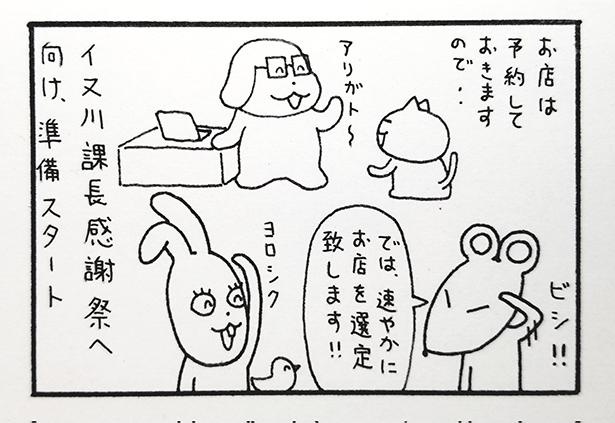 お店は
予約して
おきます
ので・・
アリガト〜
イヌ川課長感謝祭へ
向け、準備スタート
ビシ!!
では、速やかに
お店を選定
致します!!
ヨロシク